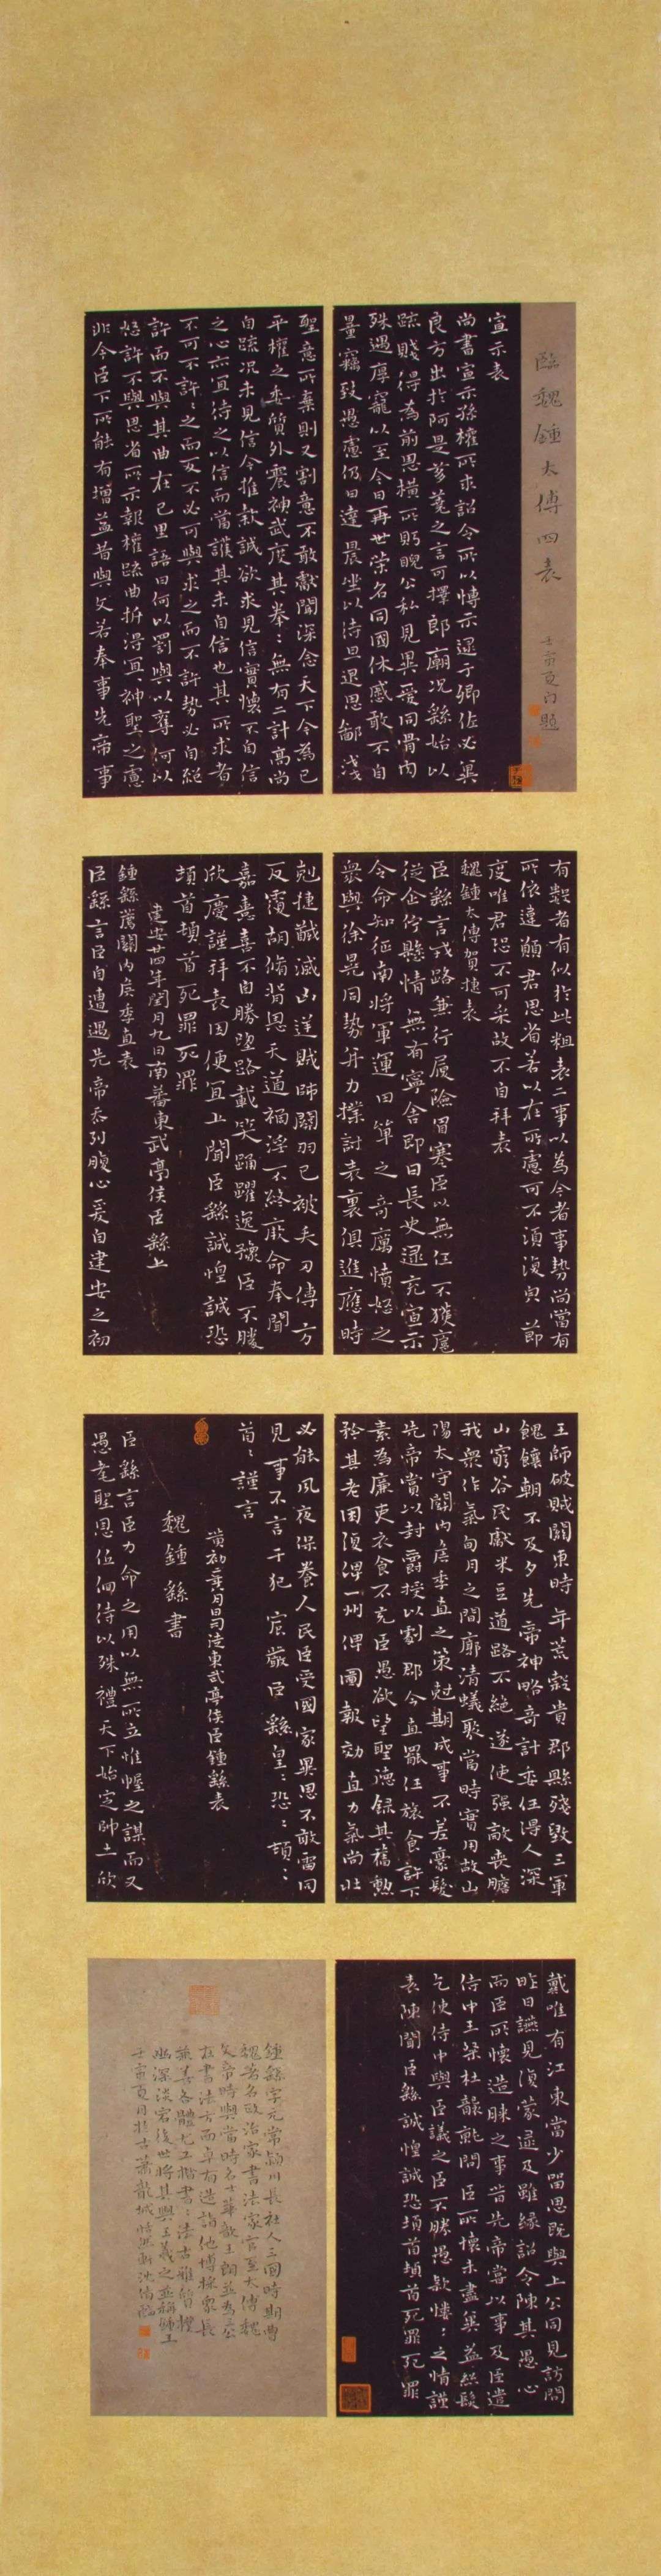 臨魏鍾太傅四表
壬寅夏月題
宣示表
尚書宣示孫權所求詔令所以博示逮于卿佐必冀
良方出於阿是芻蕘之言可擇郎廟況繇始以
疏賤得為前恩橫所眄睨公私見異愛同骨肉
殊遇厚寵以至今日再世榮名同國休慼敢不自
量竊致愚慮仍日達晨坐以待旦退思鄙淺
聖意所棄則又割意不敢獻聞深念天下今為已
平權之委質外震神武度其拳﹕無有二計高尚
自疏況未見信今推款誠欲求見信實懷不自信
之心亦宜待之以信而當護其未自信也其所求者
不可不許﹕之而反不必可與求之而不許勢必自絕
許而不與其曲在己里語曰何以罰與以奪何以
怒許不與思省所示報權疏曲折得宜神聖之慮
非今臣下所能有增益昔與文若奉事先帝事
有數者有似於此粗表二事以為今者事勢尚當有
所依違願君思省若以在所慮可不須復貞節
度唯君恐不可采故不自拜表
魏鍾太傅賀捷表
臣繇言戎路兼行履險冒寒臣以無任不獲扈
從企佇懸情無有寧舍即日長史逮充宣示
令命知征南將軍運田單之奇厲憤怒之
眾與徐晃同勢并力撲討表裏俱進應時
剋捷馘滅凶逆賊帥關羽已被矢刃傅方
反覆胡脩背恩天道禍淫不終厥命奉聞
嘉憙喜不自勝望路載笑踊躍逸豫臣不勝
欣慶謹拜表因便宜上聞臣繇誠惶誠恐
頓首頓首死罪死罪
建安廿四年閏月九日南蕃東武亭侯臣繇上
鍾繇薦關內侯季直表
臣繇言臣自遭遇先帝忝列腹心爰自建安之初
王師破賊關東時年荒穀貴郡縣殘毀三軍
餽饟朝不及夕先帝神略奇計委任得人深
山窮谷民獻米豆道路不絕遂使強敵喪膽
我眾作氣旬月之間廓清蟻聚當時實用故山
陽太守關內侯季直之策剋期成事不差豪髮
先帝賞以封爵授以劇郡今直罷任旅食許下
素為廉吏衣食不充臣愚欲望聖德錄其舊勳
矜其老困復俾一州俾圖報効直力氣尚壯
必能夙夜保養人民臣受國家異恩不敢雷同
見事不言干犯宸嚴臣繇皇﹕恐﹕頓﹕
首﹕謹言
東武亭侯臣鍾繇表
魏鍾繇書
臣繇言臣力命之用以無所立惟幄之謀而又
愚耄聖恩低徊待以殊禮天下始定帥土欣
戴唯有江東當少留思既與上公同見訪問
昨日讌見復蒙逮及雖緣詔令陳其愚心
而臣所懷造膝之事昔先帝嘗以事及臣遣
侍中王粲杜襲就問臣所懷未盡冀益絲髮
乞使侍中與臣議之臣不勝愚款慺﹕之情謹
表陳聞臣繇誠惶誠恐頓首頓首死罪死罪
鍾繇字元常潁川長社人三國時期曹
魏著名政治家書法家官至太傅魏
文帝時與當時名士華歆王朗並為三公
在書法方面卓有造詣他博採眾長
兼善各體尤工楷書
後世將其與王羲之並稱鍾王